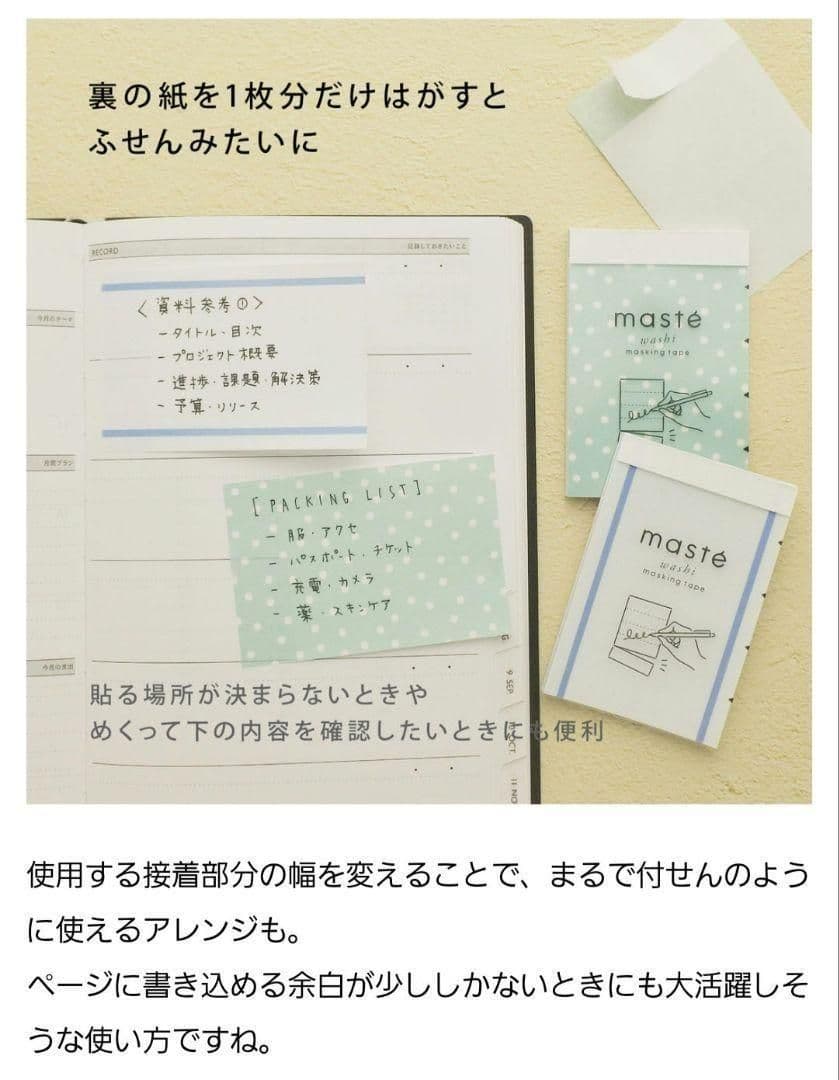 裏の紙を1枚分だけはがすと
ふせんみたいに
RECORD
記録しておきたいこと
今月のテーマ
〈資料参考①〉
－タイトル・目次
－プロジェクト概要
－進捗・課題・解決策
－予算・リリース
月間プラン
[PACKING LIST]
－服・アクセ
－パスポート・チケット
－充電・カメラ
－薬・スキンケア
今月の支出
masté
washi
masking tape
masté
washi
masking tape
G
9 SEP.
OCT.
11 NO
貼る場所が決まらないときや
めくって下の内容を確認したいときにも便利
使用する接着部分の幅を変えることで、まるで付せんのよう
に使えるアレンジも。
ページに書き込める余白が少ししかないときにも大活躍しそ
うな使い方ですね。